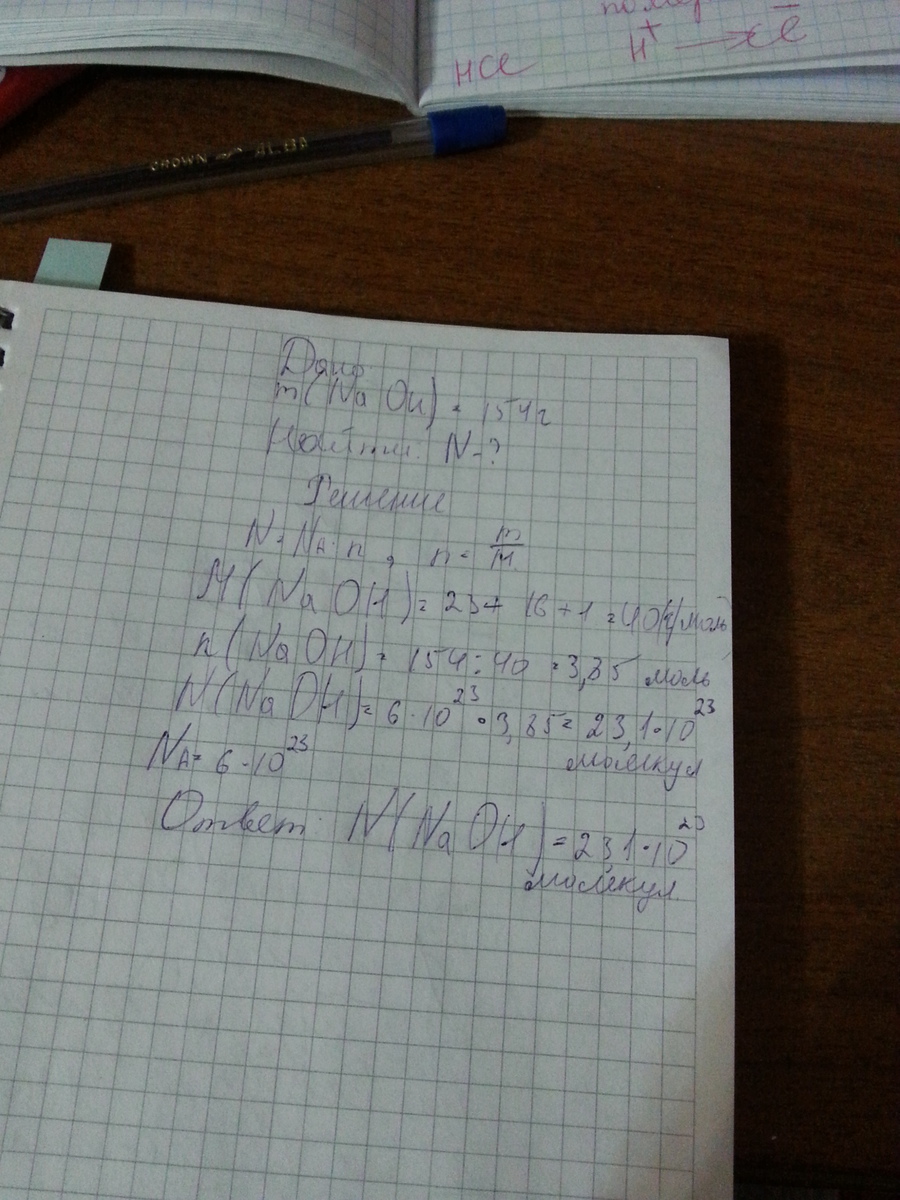 H⁺ → Cl⁻
HCl
CROWN
Дано
m(NaOH) = 154г
Найти: N-?
Решение
N = NA · n, n = m/M
M(NaOH) = 23 + 16 + 1 = 40(г/моль)
n(NaOH) = 154 : 40 = 3,85 моль
N(NaOH) = 6 · 10²³ · 3,85 = 23,1 · 10²³
молекул
NA = 6 · 10²³
Ответ: N(NaOH) = 23,1 · 10²³
молекул